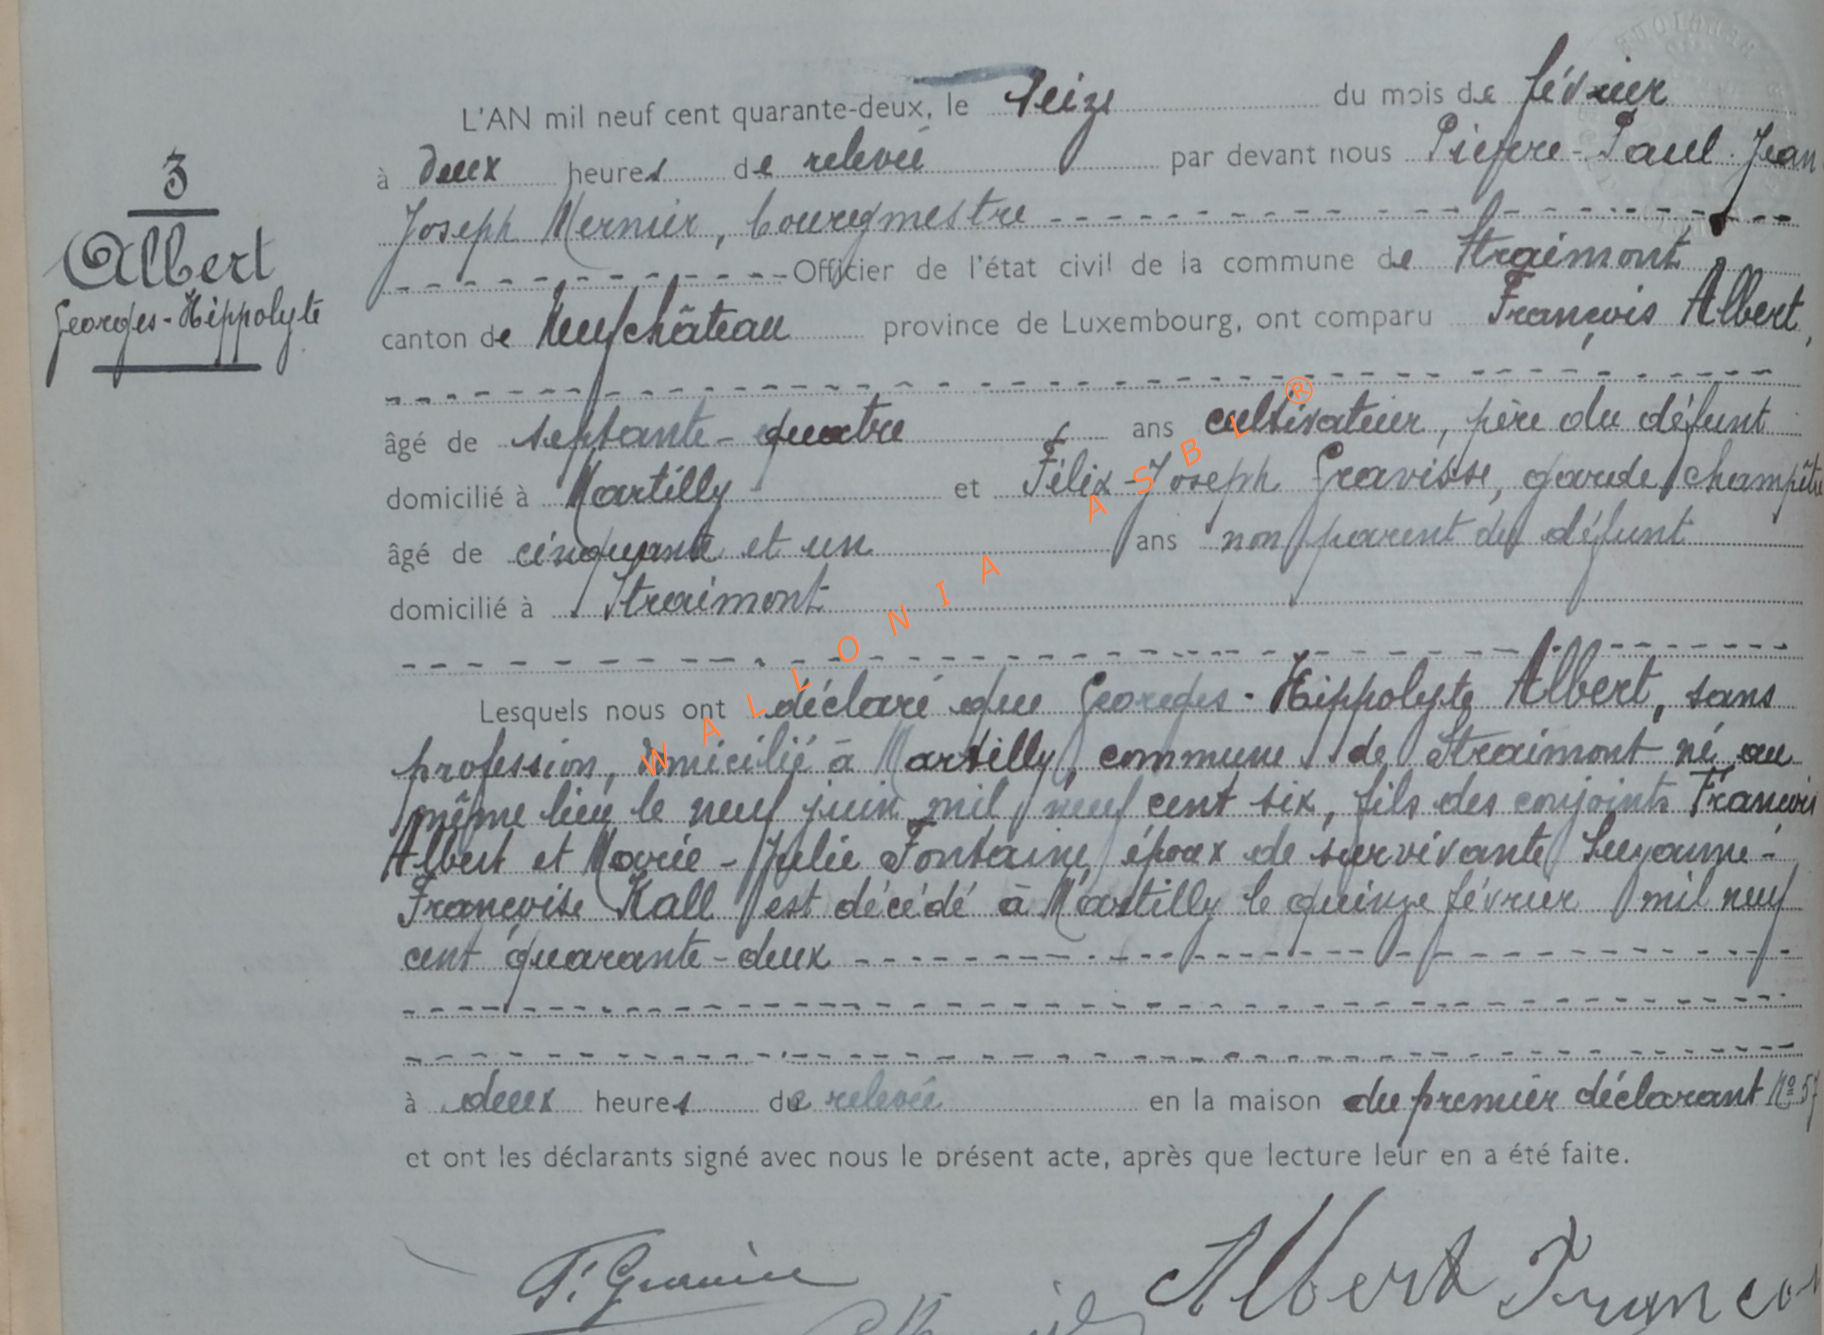 L'AN mil neuf cent quarante-deux, le seize du mois de février
3
à deux heures de relevée par devant nous Pierre-Paul-Jean
Joseph Mernier, bourgmestre
Albert
Officier de l'état civil de la commune de Straimont
Georges-Hippolyte
canton de Neufchâteau province de Luxembourg, ont comparu François Albert,
âgé de septante-quatre ans cultivateur, père du défunt
domicilié à Martilly et Félix-Joseph Gravisse, garde champêtre
âgé de cinquante et un ans non parent du défunt
domicilié à Straimont
Lesquels nous ont déclaré que Georges-Hippolyte Albert, sans
profession, domicilié à Martilly, commune de Straimont né au
même lieu le neuf juin mil neuf cent six, fils des conjoints François
Albert et Marie-Julie Fontaine, époux de survivante Suzanne-
Françoise Kall est décédé à Martilly le quinze février mil neuf
cent quarante-deux
à deux heures de relevée en la maison du premier déclarant No 57
et ont les déclarants signé avec nous le présent acte, après que lecture leur en a été faite.
Albert François
WALLONIA ASBL ®